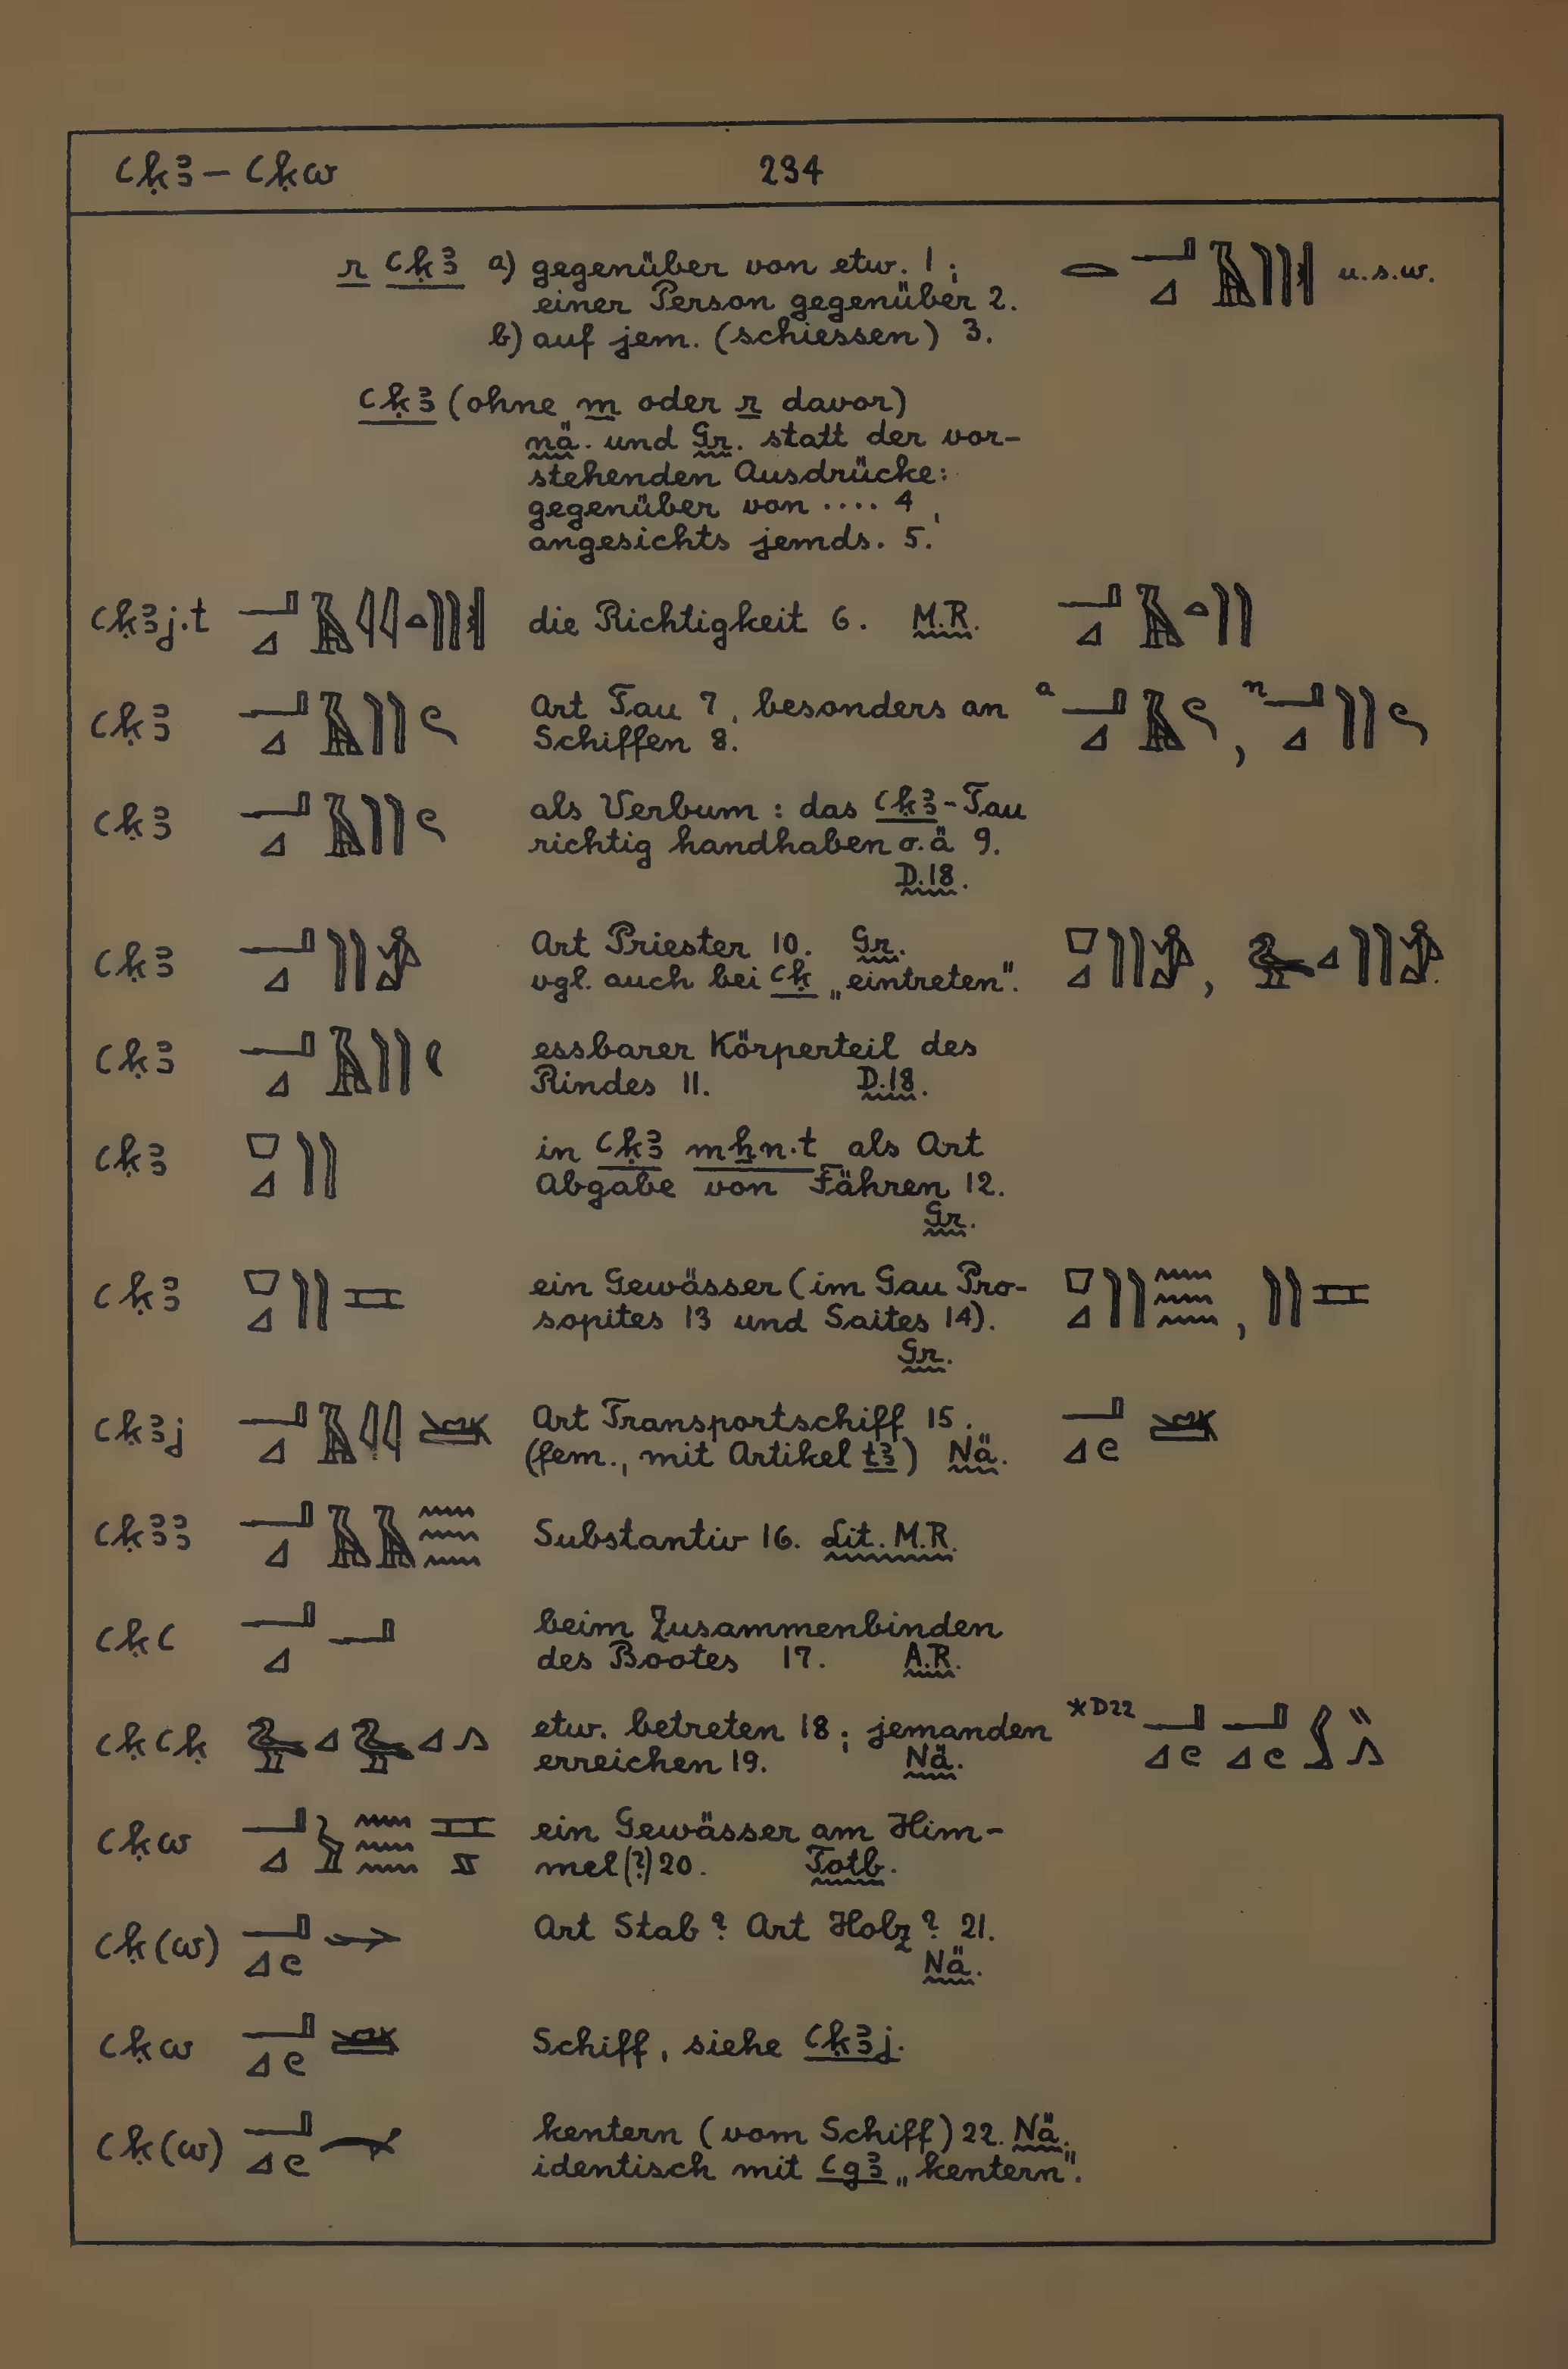 ꜥḳꜣ – ꜥḳw 234
r ꜥḳꜣ a) gegenüber von etw. 1; u.s.w.
einer Person gegenüber 2.
b) auf jem. (schiessen) 3.
ꜥḳꜣ (ohne m oder r davor)
nä. und Gr. statt der vor-
stehenden Ausdrücke:
gegenüber von .... 4,
angesichts jemds. 5.
ꜥḳꜣj.t die Richtigkeit 6. M.R.
ꜥḳꜣ Art Tau 7, besonders an a , n
Schiffen 8.
ꜥḳꜣ als Verbum: das ꜥḳꜣ-Tau
richtig handhaben o.ä 9.
D.18.
ꜥḳꜣ Art Priester 10. Gr. ,
vgl. auch bei ꜥḳ „eintreten".
ꜥḳꜣ essbarer Körperteil des
Rindes 11. D.18.
ꜥḳꜣ in ꜥḳꜣ mẖn.t als Art
Abgabe von Fähren 12.
Gr.
ꜥḳꜣ ein Gewässer (im Gau Pro- ,
sopites 13 und Saites 14).
Gr.
ꜥḳꜣj Art Transportschiff 15.
(fem., mit Artikel tꜣ) Nä.
ꜥḳꜣꜣ Substantiv 16. Lit. M.R.
ꜥḳꜥ beim Zusammenbinden
des Bootes 17. A.R.
ꜥḳꜥḳ etw. betreten 18; jemanden *D22
erreichen 19. Nä.
ꜥḳw ein Gewässer am Him-
mel(?) 20. Totb.
ꜥḳ(w) Art Stab? Art Holz? 21.
Nä.
ꜥḳw Schiff, siehe ꜥḳꜣj.
ꜥḳ(w) kentern (vom Schiff) 22. Nä.
identisch mit ꜥgꜣ „kentern".